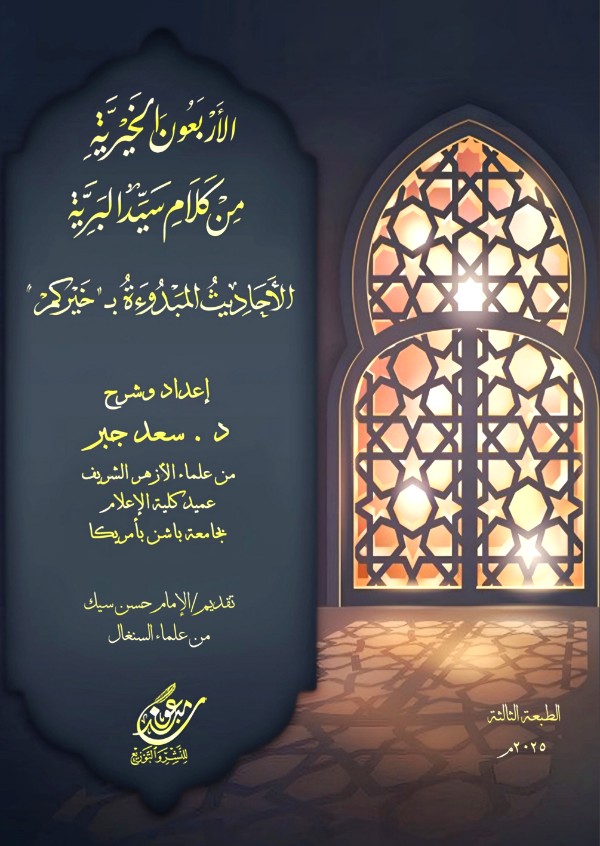 الأَرْبَعُونَ الخَيْرِيَّةِ
مِنْ كَلَامِ سَيِّدِ البَرِيَّةِ
الأَحَادِيثُ المَبْدُوءَةُ بـ "خَيْركم"
إعداد وشرح
د . سعد جبر
من علماء الأزهر الشريف
عميد كلية الإعلام
بجامعة باشن بأمريكا
تقديم/الإمام حسن سيك
من علماء السنغال
للنَّشْرِ وَالتَّوْزِيعْ
الطبعة الثالثة
٢٠٢٥م